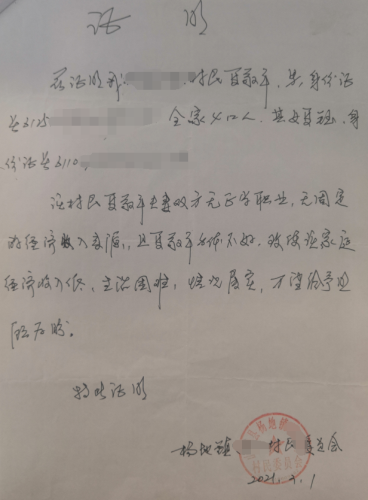 证 明
兹证明我 村民夏敬年,男,身份证
号3125 全家4口人,其女夏 ,身
份证号3110
该村民夏敬年夫妻双方无正当职业,无固定
的经济收入来源,且夏敬年身体不好,致使该家庭
经济收入低,生活困难,情况属实,万望给予
为盼。
特此证明
杨地镇 村民委员会
2021.7.1